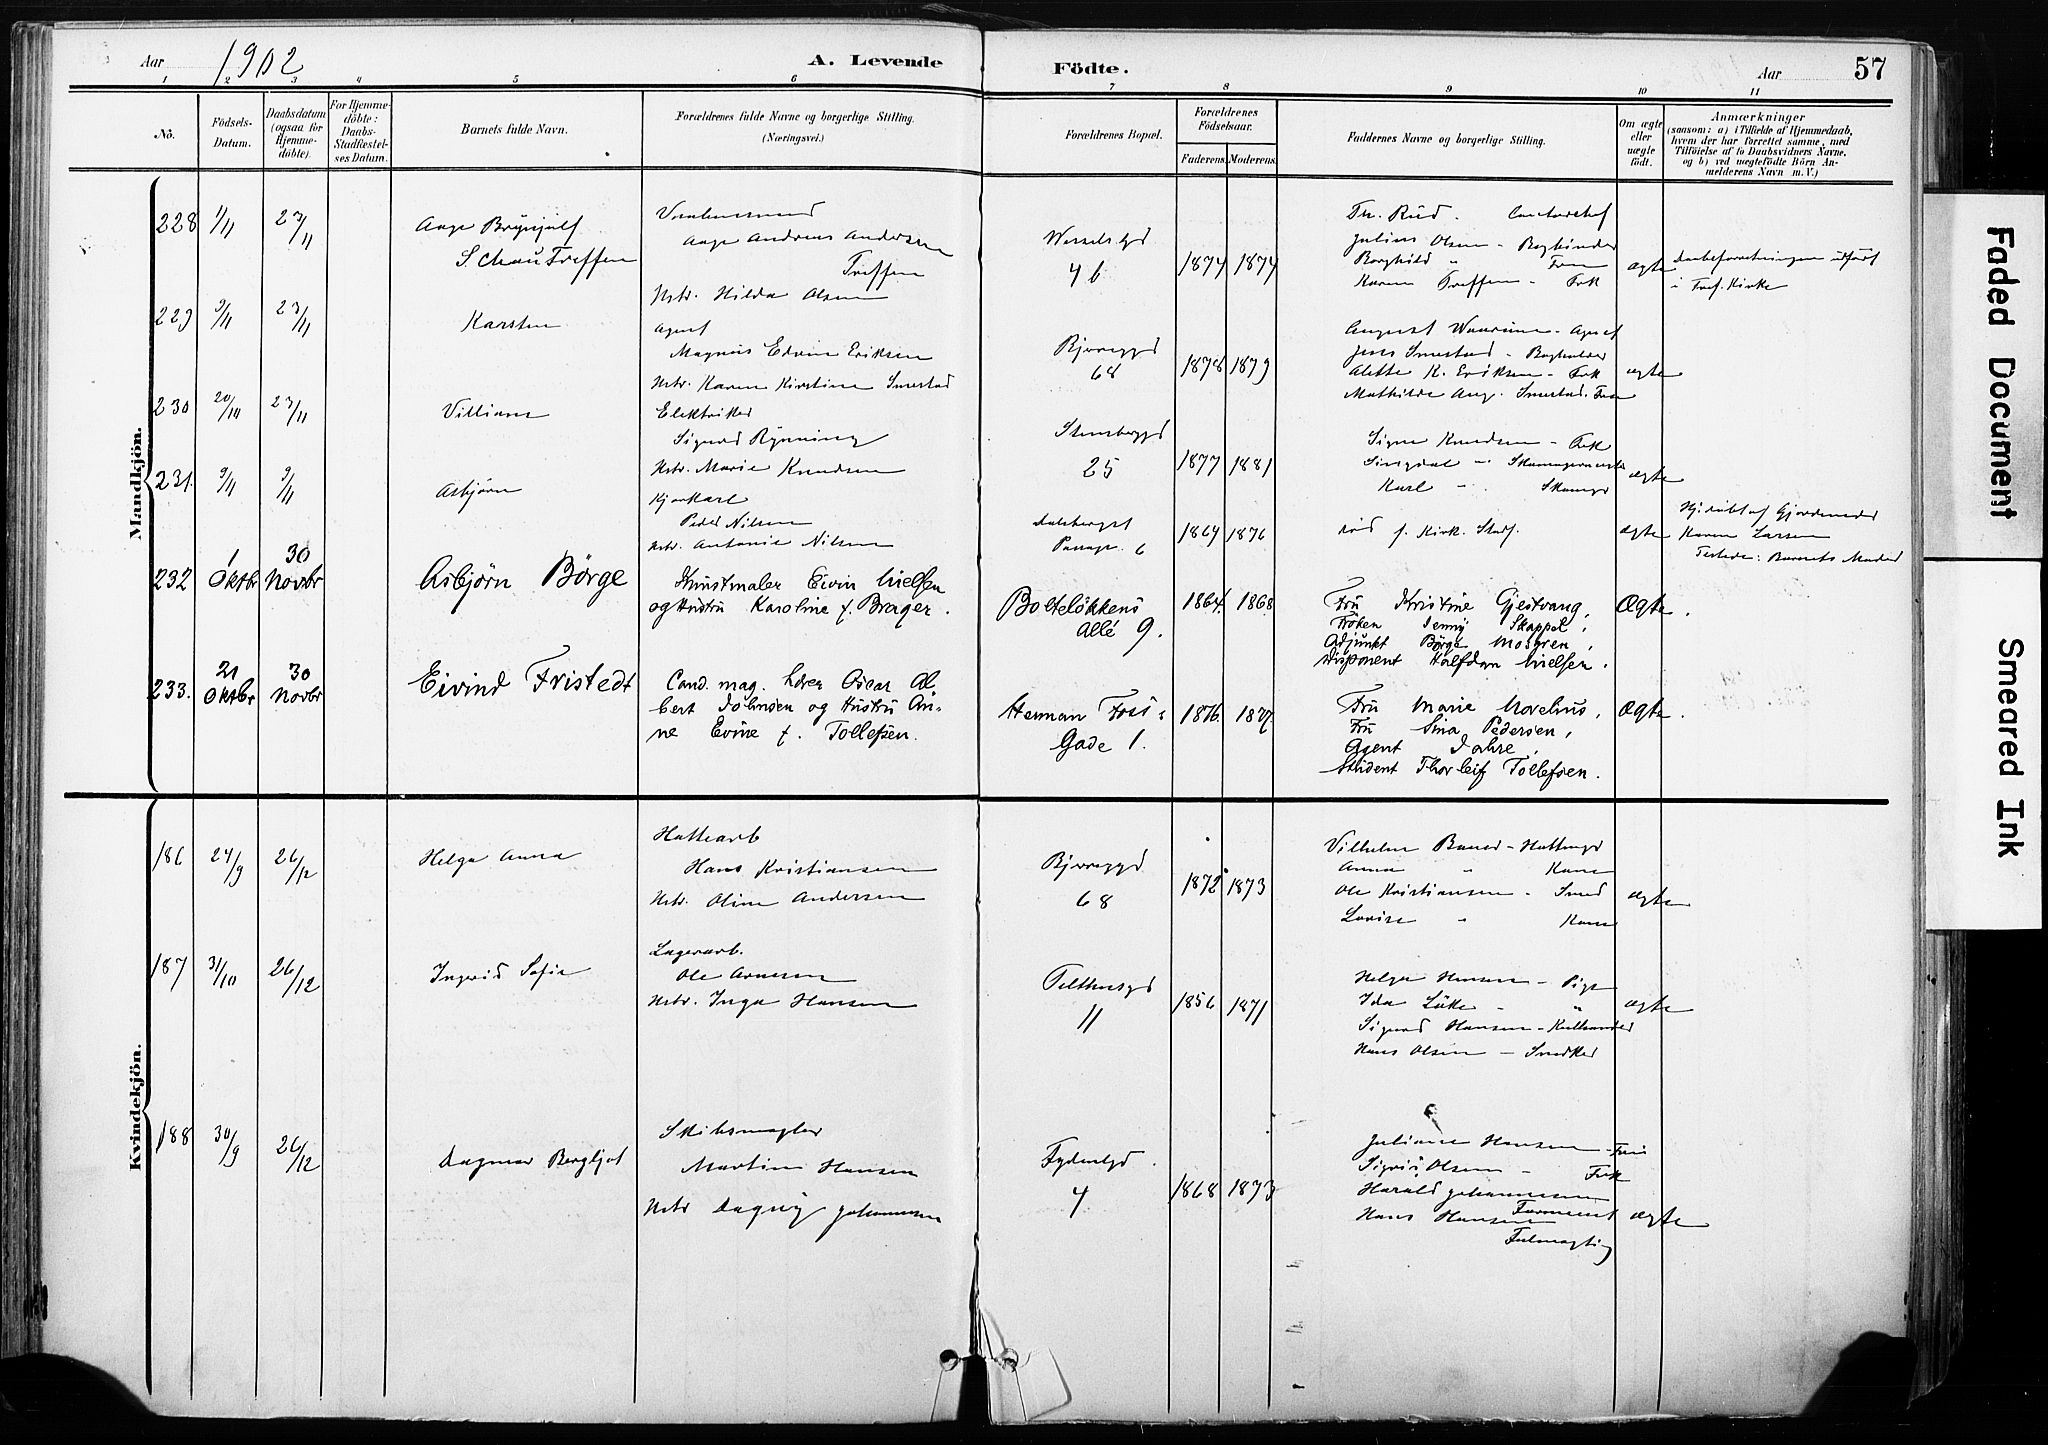 Aar 1902 A. Levende Födte. Aar 57
1 2 3 4 5 6 7 8 9 10 11
No.
Födsels-Datum.
Daabsdatum (ogsaa for Hjemme-döbte).
For Hjemme-döbte: Daabs-Stadfæstel-ses Datum.
Barnets fulde Navn.
Forældrenes fulde Navne og borgerlige Stilling.
(Næringsvei.)
Forældrenes Bopæl.
Forældrenes Födselsaar.
Faderens. Moderens.
Faddernes Navne og borgerlige Stilling.
Om ægte eller uægte födt.
Anmærkninger
(saasom: a) i Tilfælde af Hjemmedaab, hvem der har forrettet samme, med Tilföielse af to Daabsvidners Navne, og b) ved uægtefödte Börn An-melderens Navn m. V.)
Mandkjön.
228 1/11 23/11 Aage Brynjulf
Schau Treffen
Aage Andreas Andersen
Treffen
Hstr. Hilda Olsen
Wesselsgd
4 b
1874 1874
Th. Rud.
Julius Olsen - Bogbinder
Borghild " Frue
Karen Treffen - Frk
ægte
Daabsforretningen udført
i Tref. Kirke
229 9/11 23/11 Karsten
Agent
Magnus Edvin Eriksen
Hstr. Karen Kirstine Smestad
Bjerregd
68
1878 1879
August - Agent
Jens Smestad - Bogholder
Alette K. Eriksen - Frk
Mathilde Aug. Smestad. Frue
ægte
230 20/10 23/11 Villiam
Elektriker
Sigurd Rynning
Hstr. Marie Knudsen
Stensberggd
25
1877 1881
Signe Knudsen - Frk
Karl - "
ægte
231. 9/11 9/11 Asbjørn
Kjørkarl
Peder Nilsen
Hstr. Antonie Nilsen
Dalsberget
Passage 6
1864 1876
død f. Kirk. Stadf.
ægte
Hj.døbt af Gjordemoder
Karen Larsen
Testede: Barnets Moder
232 1 Oktbr 30 Novbr Asbjörn Börge
Kunstmaler Eivin Nielsen
og Hustru Karoline f. Brager.
Bolteløkkens
Allé 9.
1864. 1868
Fru Kristine Gjestvang,
Frøken Jenny Skappel,
Adjunkt Börge Mosgren,
Disponent Halfdan Nielsen.
Ægte.
233. 21 Oktbr 30 Novbr Eivind Fristedt
Cand. mag. Lærer Oscar Al-
bert Johnsen og Hustru An-
ne Evine f. Tollefsen.
Herman Foss's
Gade 1.
1876. 1877
Fru Marie Morehus,
Fru Sina Pedersen,
Agent Jahre,
Student Thorleif Tollefsen.
Ægte.
Kvindekjön.
186 24/9 26/12 Helga Anna
Hattearb
Hans Kristiansen
Hstr. Oline Andersen
Bjerregd
68
1872 1873
Vilhelm Bauer - Hattemgd
Anna " Kone
Ole Kristiansen - Smed
Lovise " Kone
ægte
187 31/10 26/12 Ingrid Sofie
Lagerarb.
Ole Arnesen
Hstr. Inga Hansen
Telthusgd
11
1856 1871
Helga Hansen - Pige
Ida Lükke - "
Sigurd Hansen - Kulhandler
Hans Olsen - Snedker
ægte
188 30/9 26/12 Dagmar Bergljot
Skibsmægler
Martin Hansen
Hstr Dagny Johannesen
Fydenlgd.
4
1868 1873
Juliane Hansen - Frue
Sigrid Olsen - Frk
Harald Johannessen
Hans Hansen
Fulmægtig
ægte
Faded Document
Smeared Ink